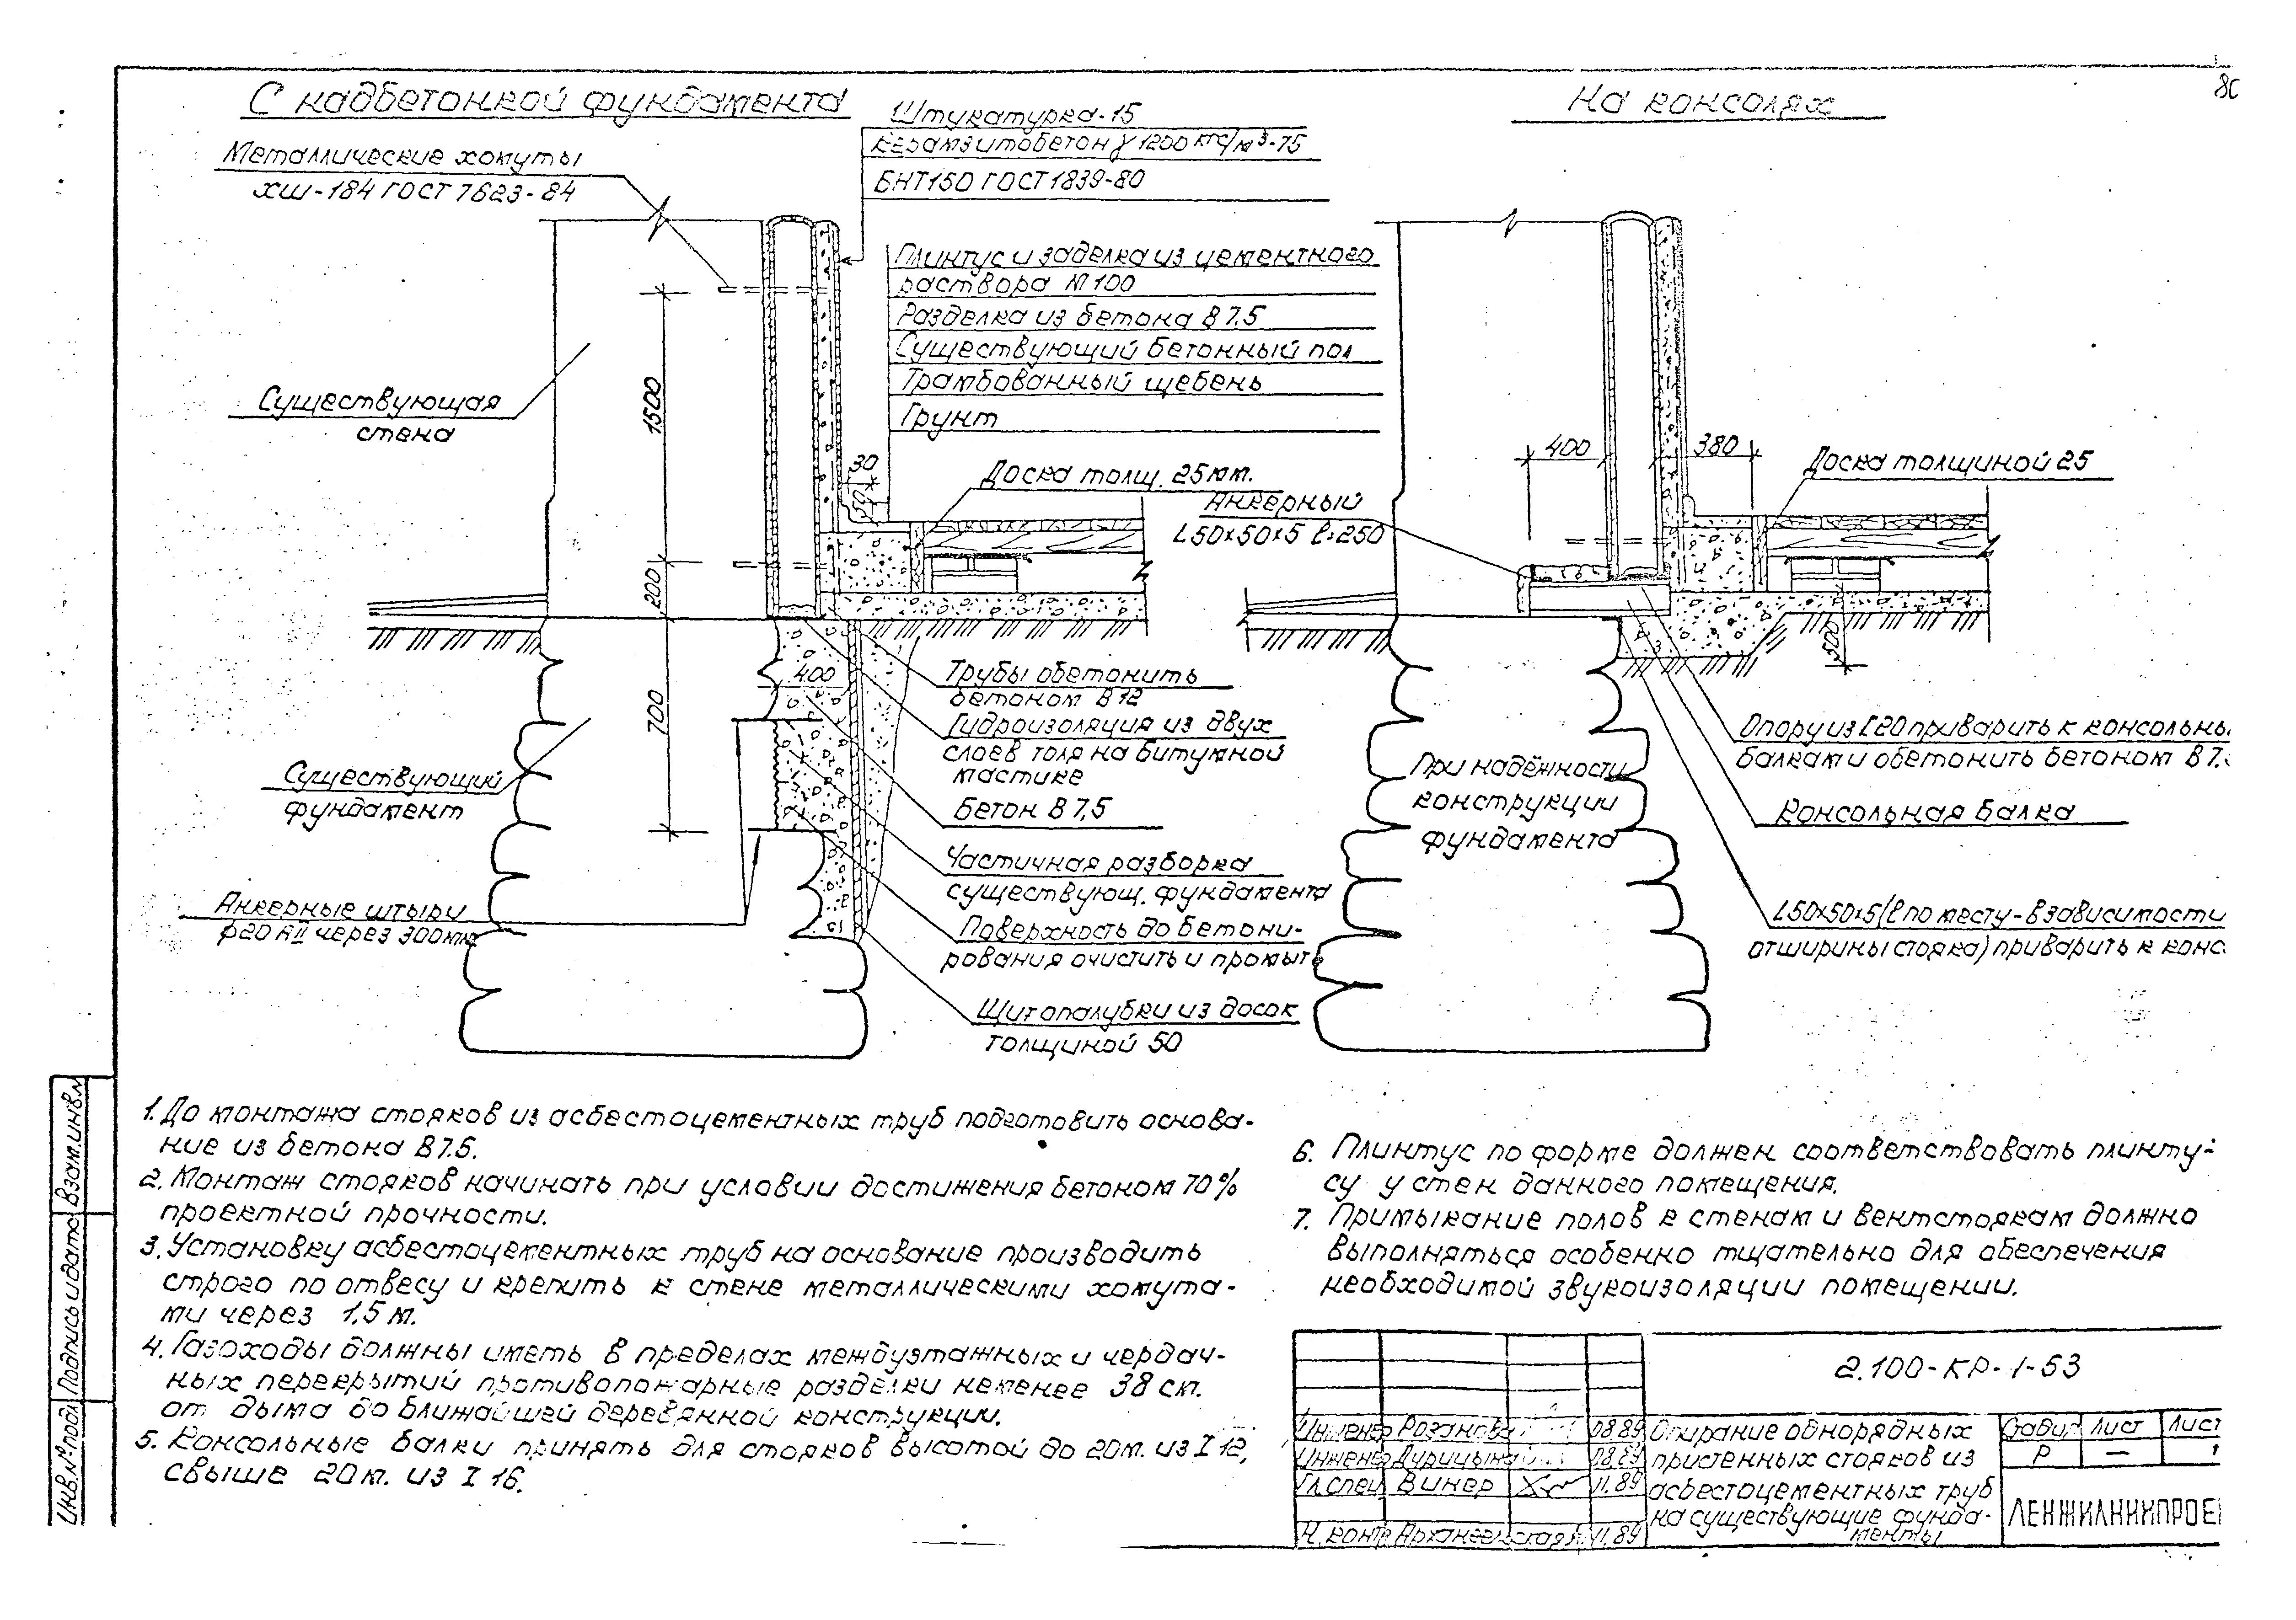 80
С надбетонкой фундамента
На консолях
Штукатурка-15
Керамзитобетон γ 1200 кгс/м³-75
БНТ150 ГОСТ 1839-80
Металлические хомуты
ХШ-184 ГОСТ 7623-84
Плинтус и заделка из цементного
раствора М100
Разделка из бетона В 7.5
Существующий бетонный пол
Трамбованный щебень
Грунт
Существующая
стена
1500
30
50
Доска толщ. 25мм.
Анкерный
L50×50×5 l=250
400
380
Доска толщиной 25
200
700
400
500
Трубы обетонить
бетоном В12
Гидроизоляция из двух
слоев толя на битумной
мастике
Бетон В 7,5
Частичная разборка
существующ. фундамента
Поверхность до бетони-
рования очистить и промыть
Щит опалубки из досок
толщиной 50
Существующий
фундамент
Анкерные штыри
ф20 АII через 300мм
При надёжности
конструкции
фундамента
Опору из [20 приварить к консольны
балкам и обетонить бетоном В 7.
Консольная балка
L50×50×5 (l по месту-в зависимости
от ширины стояка) приварить к конс
1. До монтажа стояков из асбестоцементных труб подготовить основа-
ние из бетона В7.5.
2. Монтаж стояков начинать при условии достижения бетоном 70%
проектной прочности.
3. Установку асбестоцементных труб на основание производить
строго по отвесу и крепить к стене металлическими хомута-
ми через 1,5 м.
4. Газоходы должны иметь в пределах междуэтажных и чердач-
ных перекрытий противопожарные разделки не менее 38 см.
от дыма до ближайшей деревянной конструкции.
5. Консольные балки принять для стояков высотой до 20м. из I 12,
свыше 20м. из I 16.
6. Плинтус по форме должен соответствовать плинту-
су у стен данного помещения.
7. Примыкание полов к стенам и вентстоякам должно
выполняться особенно тщательно для обеспечения
необходимой звукоизоляции помещении.
2.100-КР-1-53
Инженер Розанова 08.89
Инженер 08.89
Гл.спец. Винер 11.89
Н.контр. Архангельская 11.89
Опирание однорядных
пристенных стояков из
асбестоцементных труб
на существующие фунда-
менты
Стадия Лист Лист
Р — 1
ЛЕНЖИЛНИИПРОЕ
Взам.инв.№
Подпись и дата
Инв.№подл